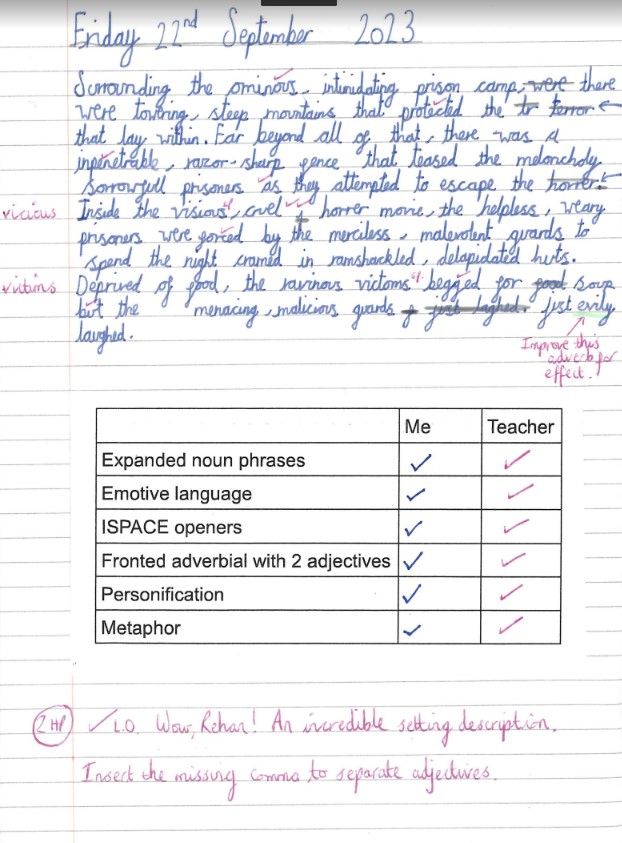 Friday 22nd September 2023
Surrounding the ominous, intimidating prison camp, were there
were towering, steep mountains that protected the tr terror
that lay within. Far beyond all of that, there was a
inpenetrable, razor-sharp fence that teased the meloncholy
sorrowfull prisoners as they attempted to escape the horrer.
vicious Inside the visious, cruel horrer movie, the helpless, weary
prisoners were forced by the merciless, malevolent guards to
spend the night cramed in ramshackled, delapidated huts.
victims Deprived of food, the ravinous victoms begged for good soup
but the menacing, malicious guards just laghed. jist evily
laughed.
Improve this
adverb for
effect.
Me Teacher
Expanded noun phrases ✓ ✓
Emotive language ✓ ✓
ISPACE openers ✓ ✓
Fronted adverbial with 2 adjectives ✓ ✓
Personification ✓ ✓
Metaphor ✓ ✓
2 HP ✓ L.O. Wow, Rehan! An incredible setting description.
Insert the missing comma to separate adjectives.